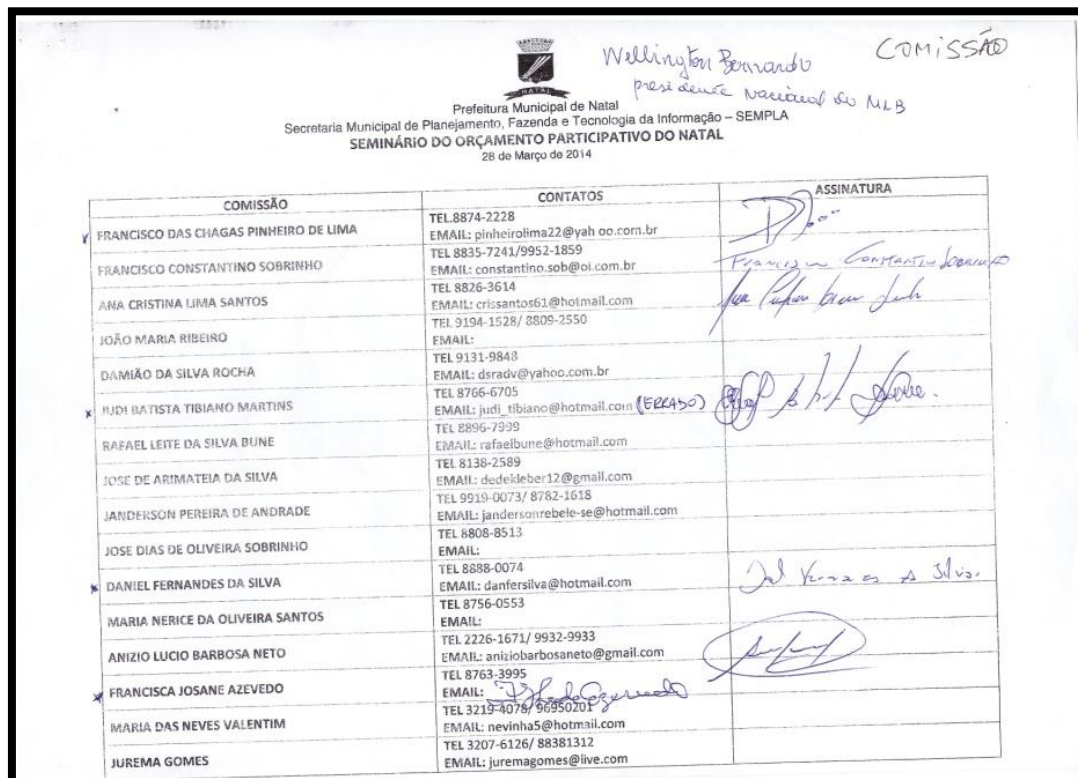 COMISSÃO
Wellington Bernardo
presidente Nacional do MLB
NATAL
Prefeitura Municipal de Natal
Secretaria Municipal de Planejamento, Fazenda e Tecnologia da Informação – SEMPLA
SEMINÁRIO DO ORÇAMENTO PARTICIPATIVO DO NATAL
28 de Março de 2014
COMISSÃO CONTATOS ASSINATURA
FRANCISCO DAS CHAGAS PINHEIRO DE LIMA TEL.8874-2228
EMAIL: pinheirolima22@yah oo.com.br
FRANCISCO CONSTANTINO SOBRINHO TEL 8835-7241/9952-1859
EMAIL: constantino.sob@oi.com.br
Francisco Constantino Sobrinho
ANA CRISTINA LIMA SANTOS TEL 8826-3614
EMAIL: crissantos61@hotmail.com
JOÃO MARIA RIBEIRO TEL 9194-1528/ 8809-2550
EMAIL:
DAMIÃO DA SILVA ROCHA TEL 9131-9848
EMAIL: dsradv@yahoo.com.br
x JUDI BATISTA TIBIANO MARTINS TEL 8766-6705
EMAIL: judi_tibiano@hotmail.com (ERRADO)
RAFAEL LEITE DA SILVA BUNE TEL 8896-7999
EMAIL: rafaelbune@hotmail.com
JOSE DE ARIMATEIA DA SILVA TEL 8138-2589
EMAIL: dedekleber12@gmail.com
JANDERSON PEREIRA DE ANDRADE TEL 9919-0073/ 8782-1618
EMAIL: jandersonrebele-se@hotmail.com
JOSE DIAS DE OLIVEIRA SOBRINHO TEL 8808-8513
EMAIL:
x DANIEL FERNANDES DA SILVA TEL 8888-0074
EMAIL: danfersilva@hotmail.com
MARIA NERICE DA OLIVEIRA SANTOS TEL 8756-0553
EMAIL:
ANIZIO LUCIO BARBOSA NETO TEL 2226-1671/ 9932-9933
EMAIL: aniziobarbosaneto@gmail.com
x FRANCISCA JOSANE AZEVEDO TEL 8763-3995
EMAIL:
MARIA DAS NEVES VALENTIM TEL 3219-4078/ 96950201
EMAIL: nevinha5@hotmail.com
JUREMA GOMES TEL 3207-6126/ 88381312
EMAIL: juremagomes@live.com